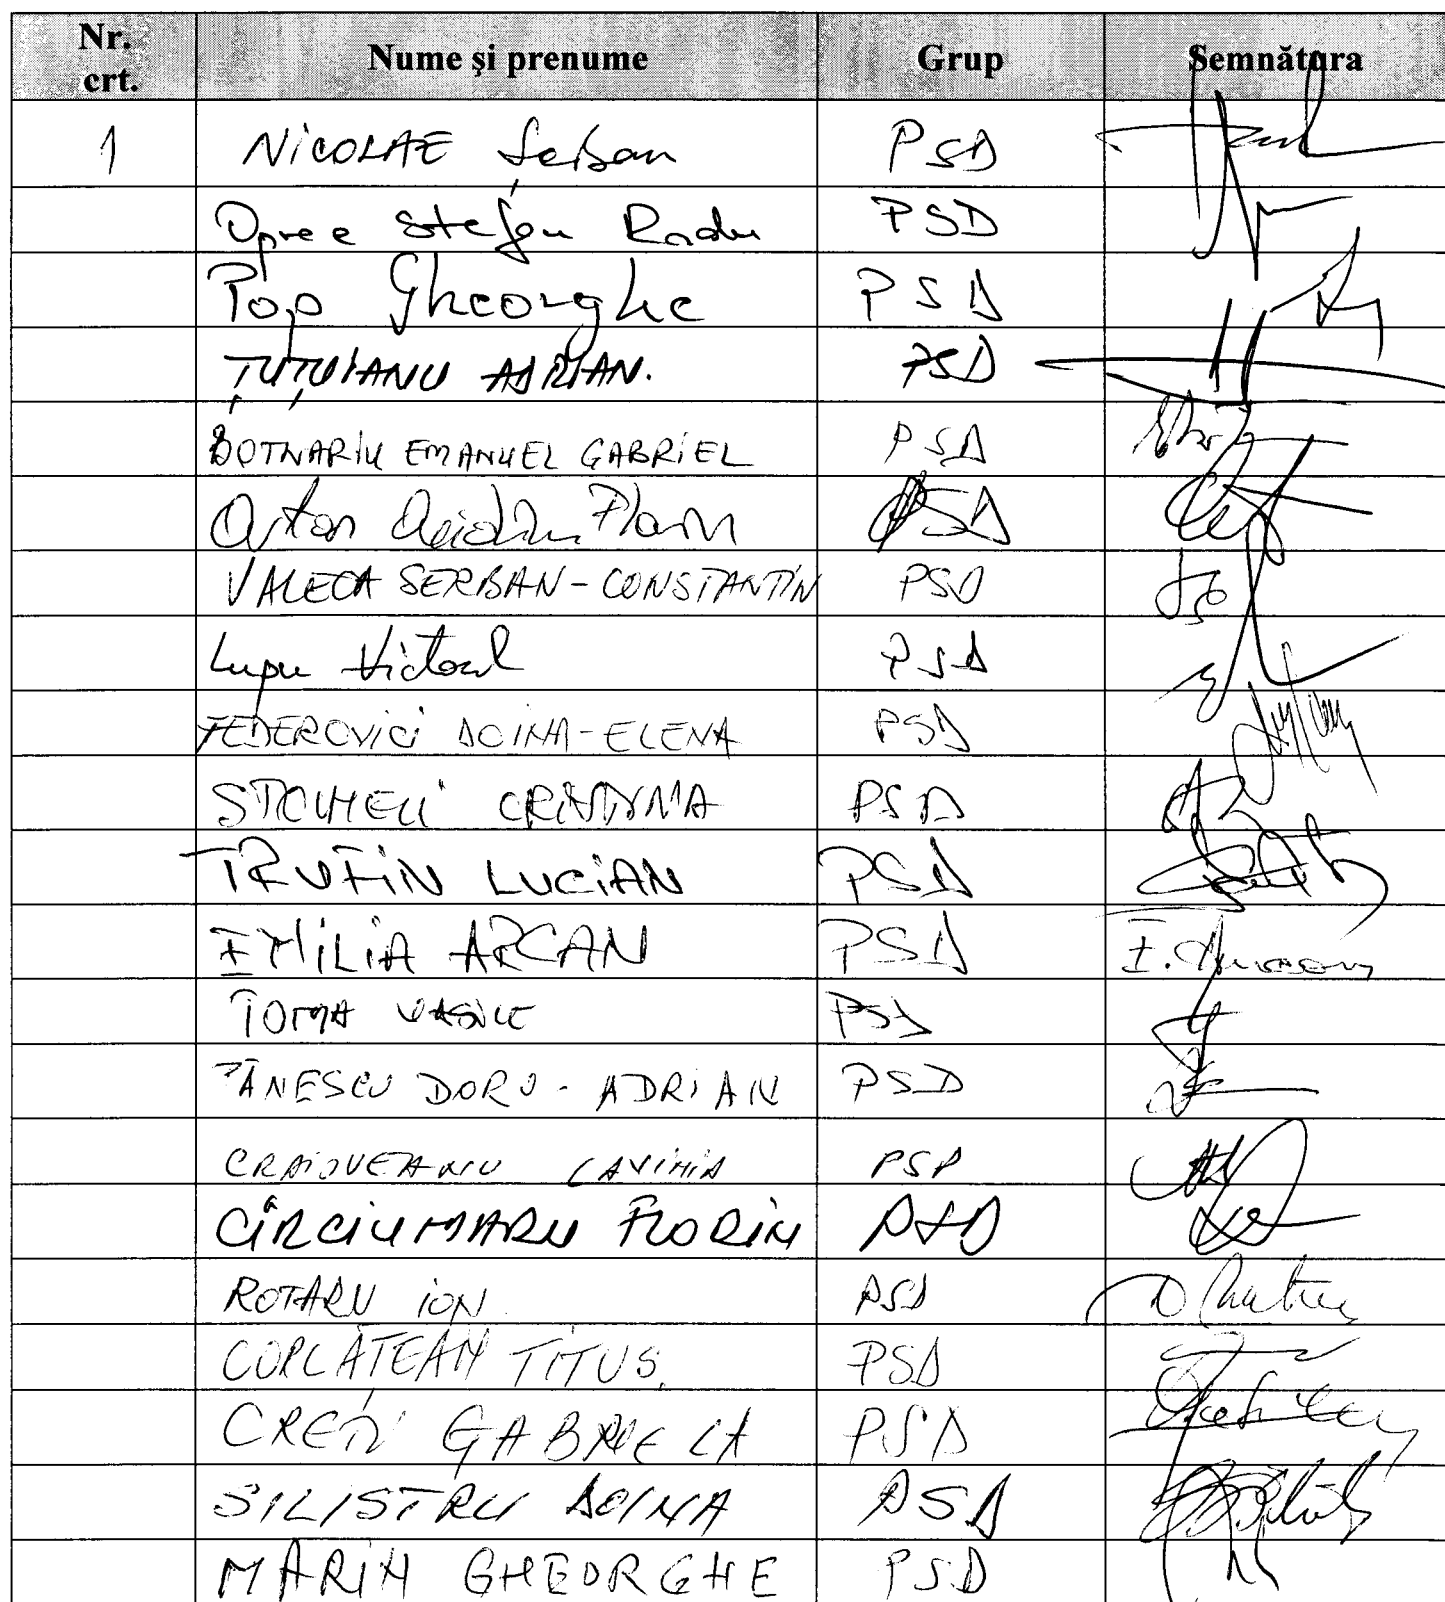 Nr. crt. Nume şi prenume Grup Semnătura
1 NICOLAE Şerban PSD
Oprea Stefan Radu PSD
Pop Gheorghe PSD
ȚUȚUIANU ADRIAN. PSD
BOTNARIU EMANUEL GABRIEL PSD
PSD
VALECA SERBAN-CONSTANTIN PSD
Lupu Victorel PSD
FEDEROVICI DOINA-ELENA PSD
PSD
TRUFIN LUCIAN PSD
EMILIA ARCAN PSD E. Arcan
TOMA VASILE PSD
PĂNESCU DORU-ADRIAN PSD
CRAIOVEANU LAVINIA PSD
CÎRCIUMARU FLORIN PSD
ROTARU ION PSD
CORLĂȚEAN TITUS PSD
CREȚU GABRIELA PSD
SILISTRU DOINA PSD
MARIN GHEORGHE PSD